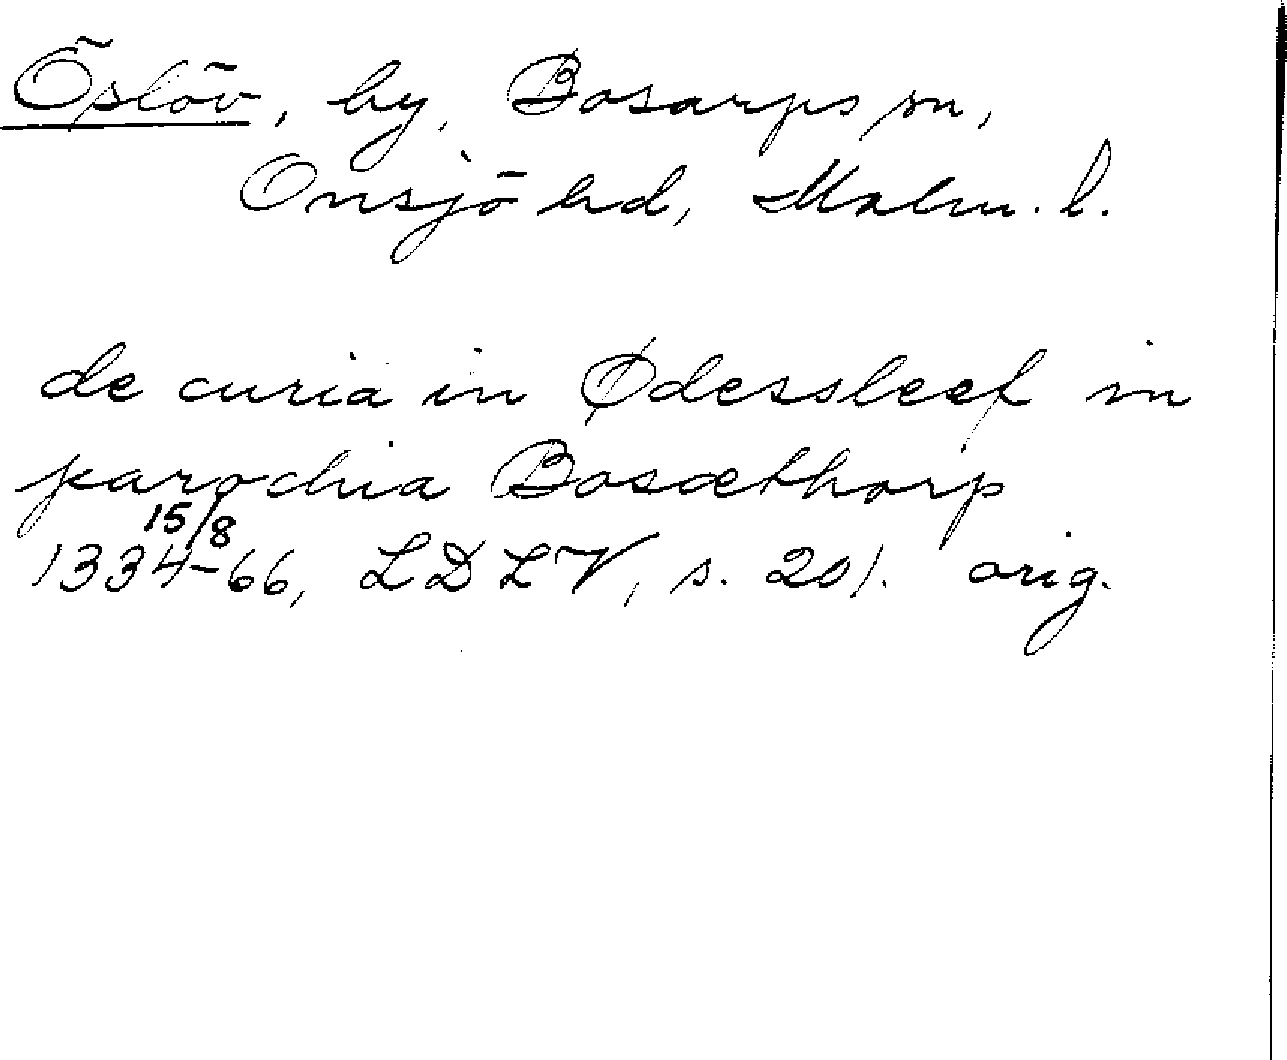 Öslöv, by, Bosarps sn,
Onsjö hd, Malm. l.
de curia in Ødessleef in
parochia Bosæthorp
15/8
1334-66, LDLV, s. 201. orig.